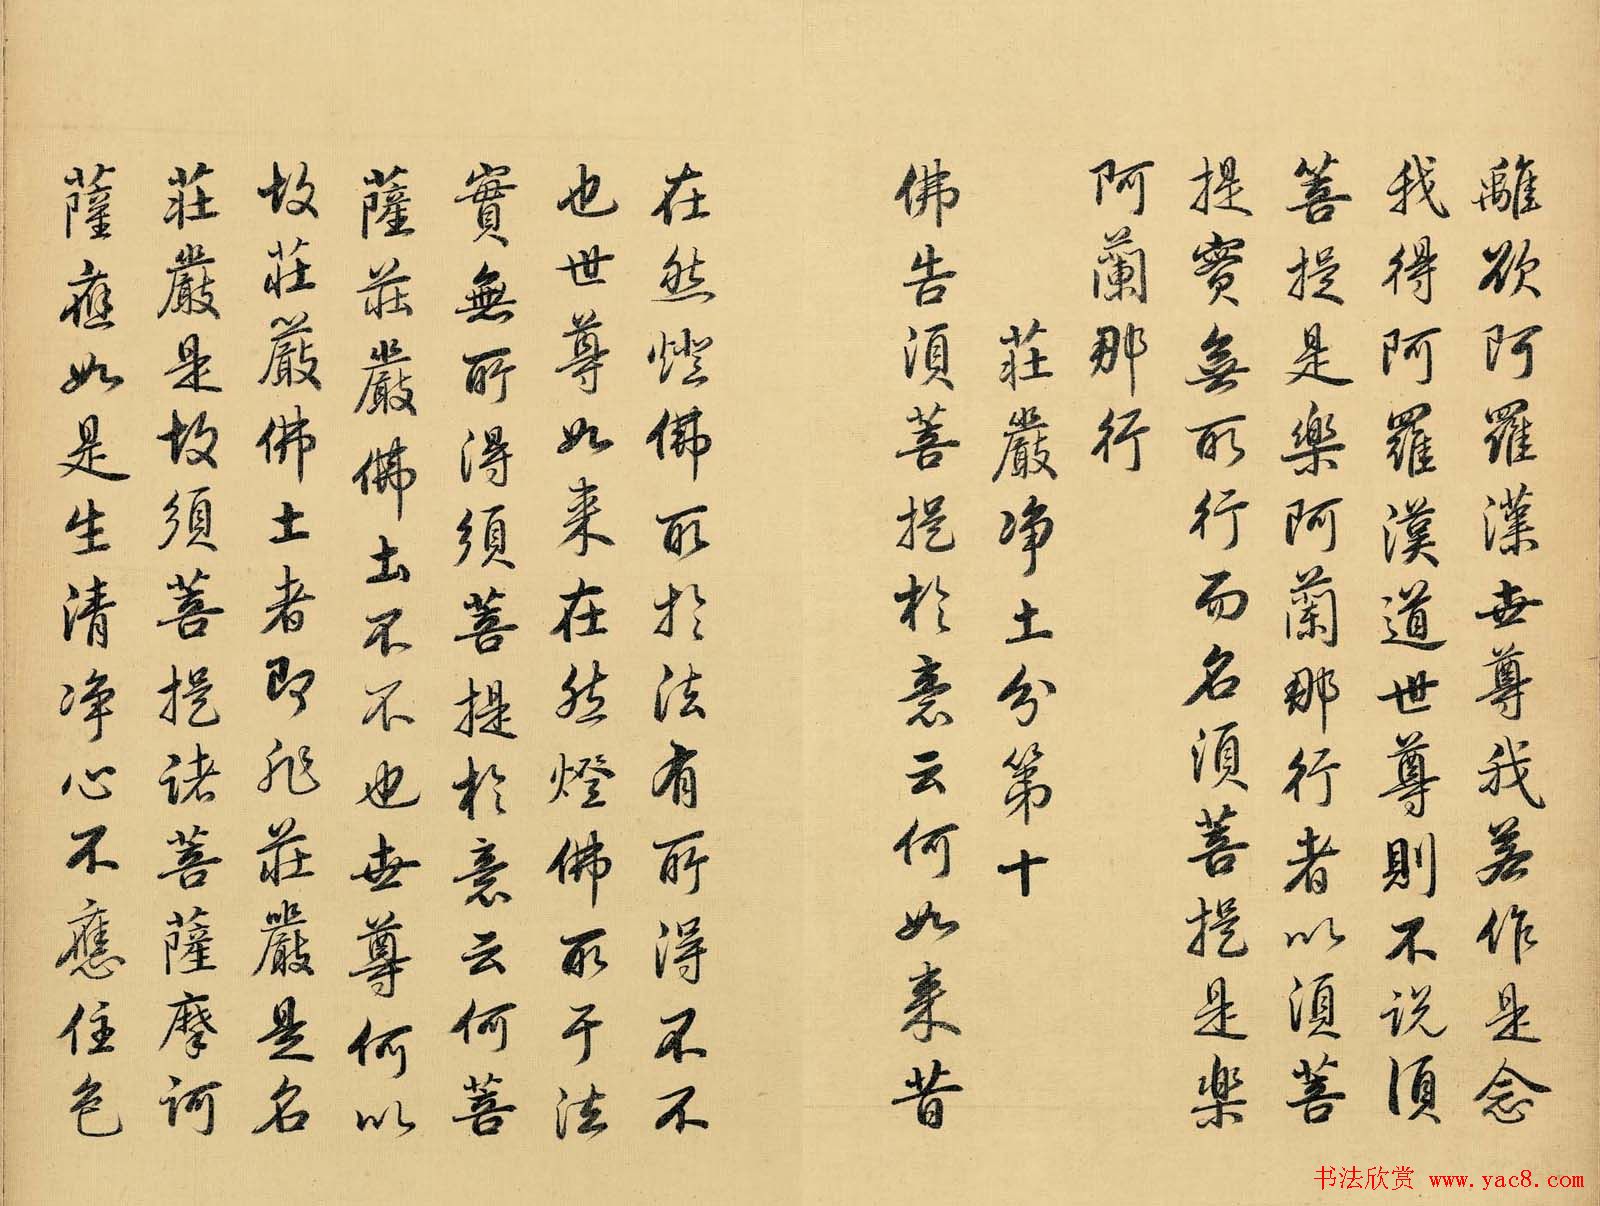 離欲阿羅漢世尊我若作是念
我得阿羅漢道世尊則不说須
菩提是樂阿蘭那行者以須菩
提實無所行而名須菩提是樂
阿蘭那行
莊嚴净土分第十
佛告須菩提於意云何如来昔
在然燈佛所於法有所得不不
也世尊如来在然燈佛所于法
實無所得須菩提於意云何菩
薩莊嚴佛土不不也世尊何以
故莊嚴佛土者即非莊嚴是名
莊嚴是故須菩提諸菩薩摩訶
薩應如是生清净心不應住色
书法欣赏 www.yac8.com